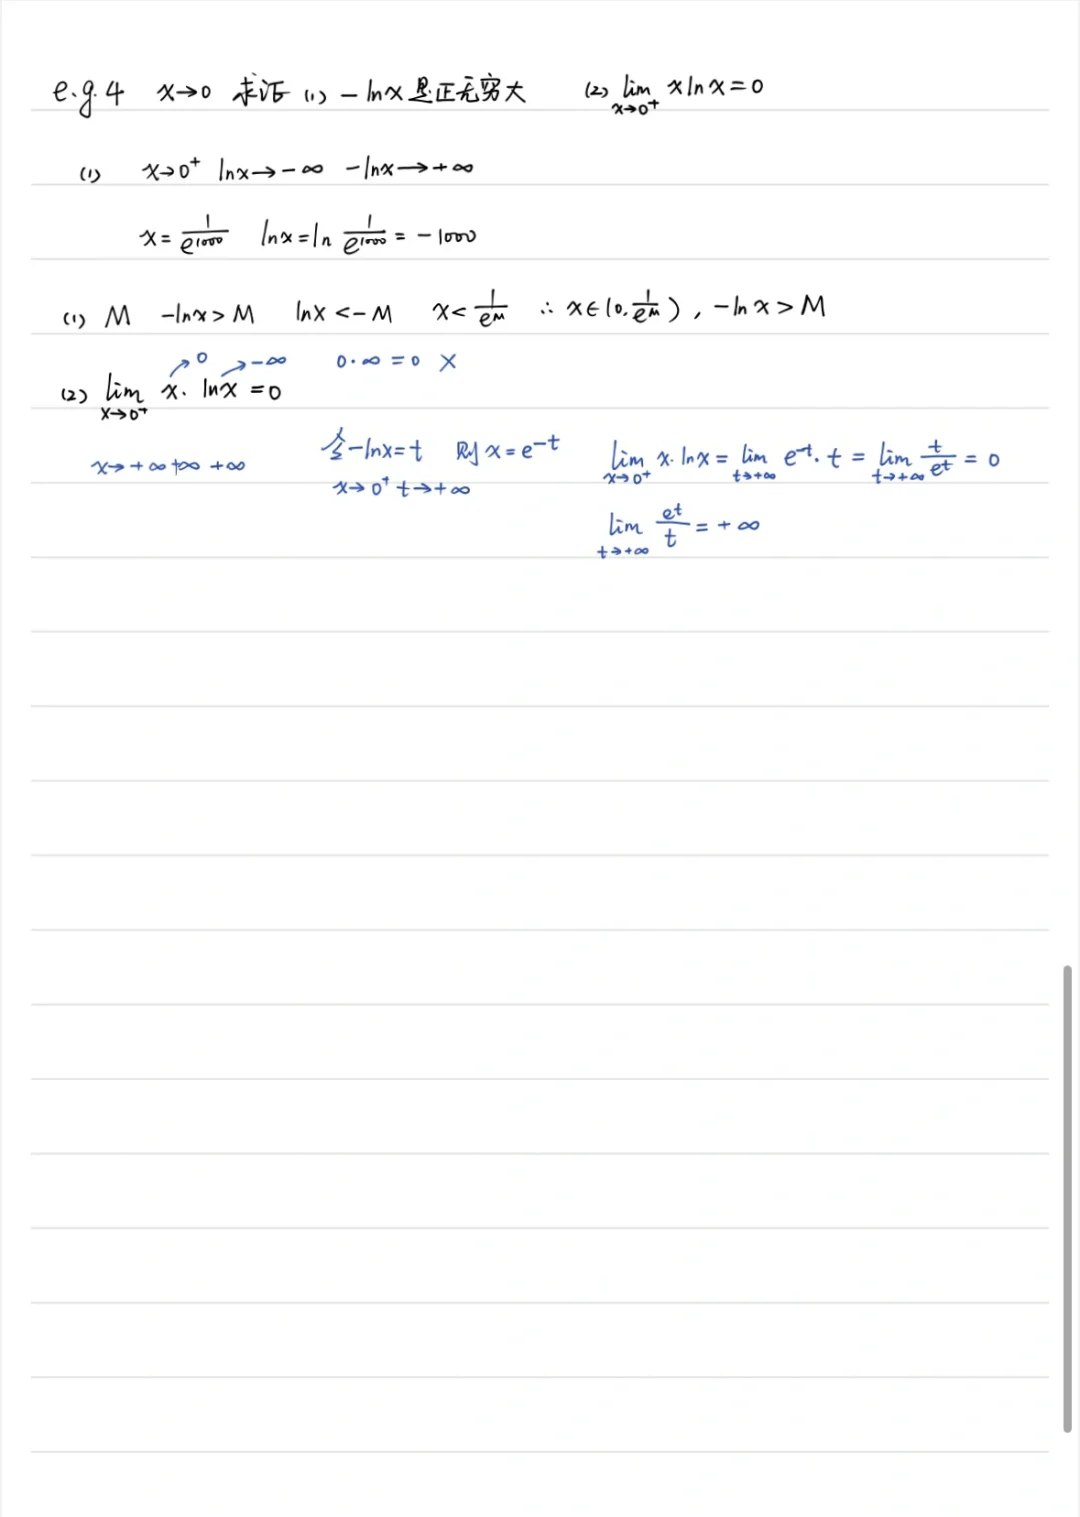 e.g.4 x→0 求证 (1) -lnx是正无穷大 (2) lim x→0⁺ xlnx=0
(1) x→0⁺ lnx→-∞ -lnx→+∞
x=1/e¹⁰⁰⁰ lnx=ln 1/e¹⁰⁰⁰ = -1000
(1) M -lnx>M lnx<-M x<1/eᴹ ∴ x∈(0,1/eᴹ), -lnx>M
↗0 ↗-∞ 0·∞=0 ×
(2) lim x→0⁺ x·lnx=0
令-lnx=t 则x=e⁻ᵗ lim x→0⁺ x·lnx = lim t→+∞ e⁻ᵗ·t = lim t→+∞ t/eᵗ = 0
x→+∞ +∞ +∞ x→0⁺ t→+∞
lim t→+∞ eᵗ/t = +∞